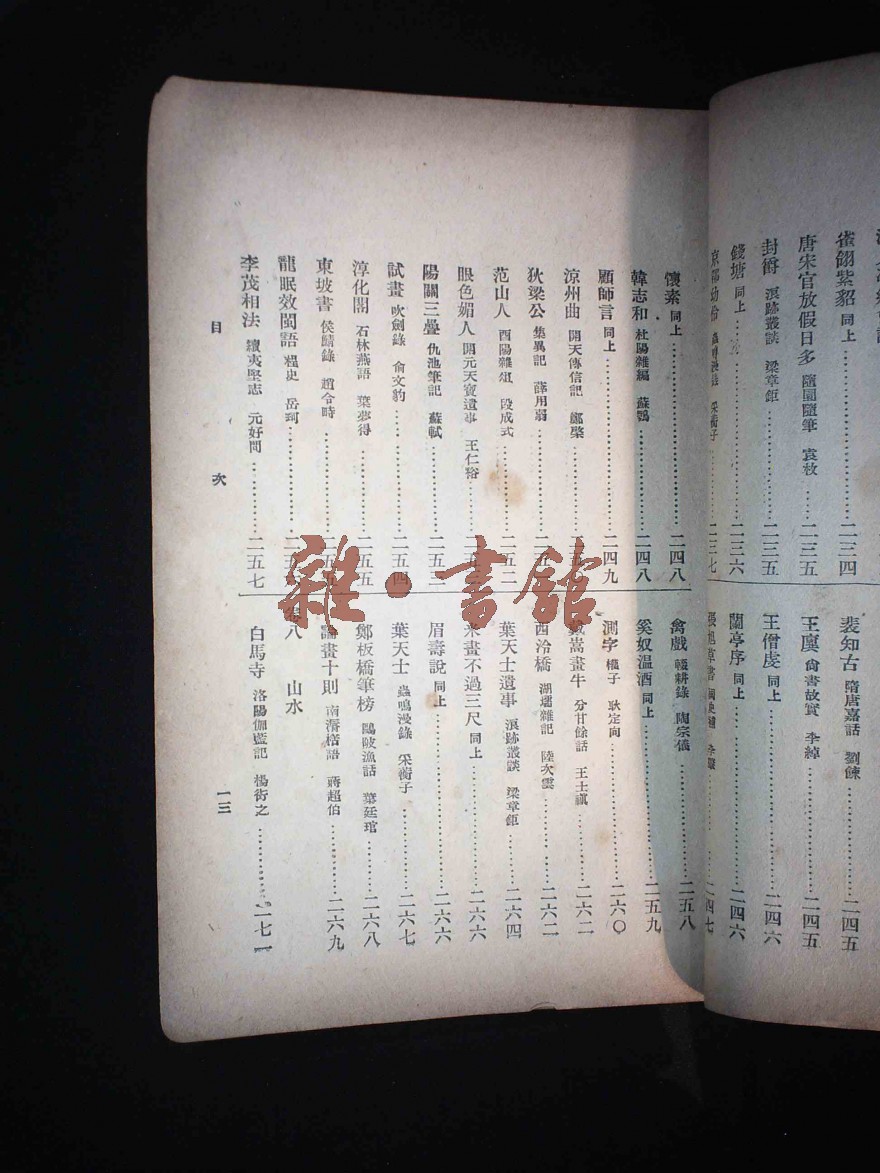 雀翎紫貂 同上 二三四
唐宋官放假日多 隨園隨筆 袁枚 二三五
封爵 浪跡叢談 梁章鉅 二三五
錢塘 同上 二三六
二三七
裴知古 隋唐嘉話 劉餗 二四五
王廙 尙書故實 李綽 二四五
王僧虔 同上 二四六
蘭亭序 同上 二四六
張旭草書 國史補 李肇 二四七
懷素 同上 二四八
韓志和 杜陽雜編 蘇鶚 二四八
顧師言 同上 二四九
涼州曲 開天傳信記 鄭棨
狄梁公 集異記 薛用弱
范山人 酉陽雜俎 段成式 二五二
眼色媚人 開元天寶遺事 王仁裕
陽關三疊 仇池筆記 蘇軾 二五三
試畫 吹劍錄 俞文豹 二五四
淳化閣 石林燕語 葉夢得 二五五
東坡書 侯鯖錄 趙令畤
龍眠效閩語 桯史 岳珂
李茂相法 續夷堅志 元好問 二五七
禽戲 輟耕錄 陶宗儀 二五八
奚奴溫酒 同上 二五九
測字 權子 耿定向 二六〇
戴嵩畫牛 分甘餘話 王士禛 二六二
西泠橋 湖壖雜記 陸次雲 二六二
葉天士遺事 浪跡叢談 梁章鉅 二六四
米畫不過三尺 同上 二六六
眉壽說 同上 二六六
葉天士 蟲鳴漫錄 采蘅子 二六七
鄭板橋筆榜 鷗陂漁話 葉廷琯 二六八
論畫十則 南漘楛語 蔣超伯 二六九
卷八 山水
白馬寺 洛陽伽藍記 楊衒之 二七一
目次
一三
雜·書館